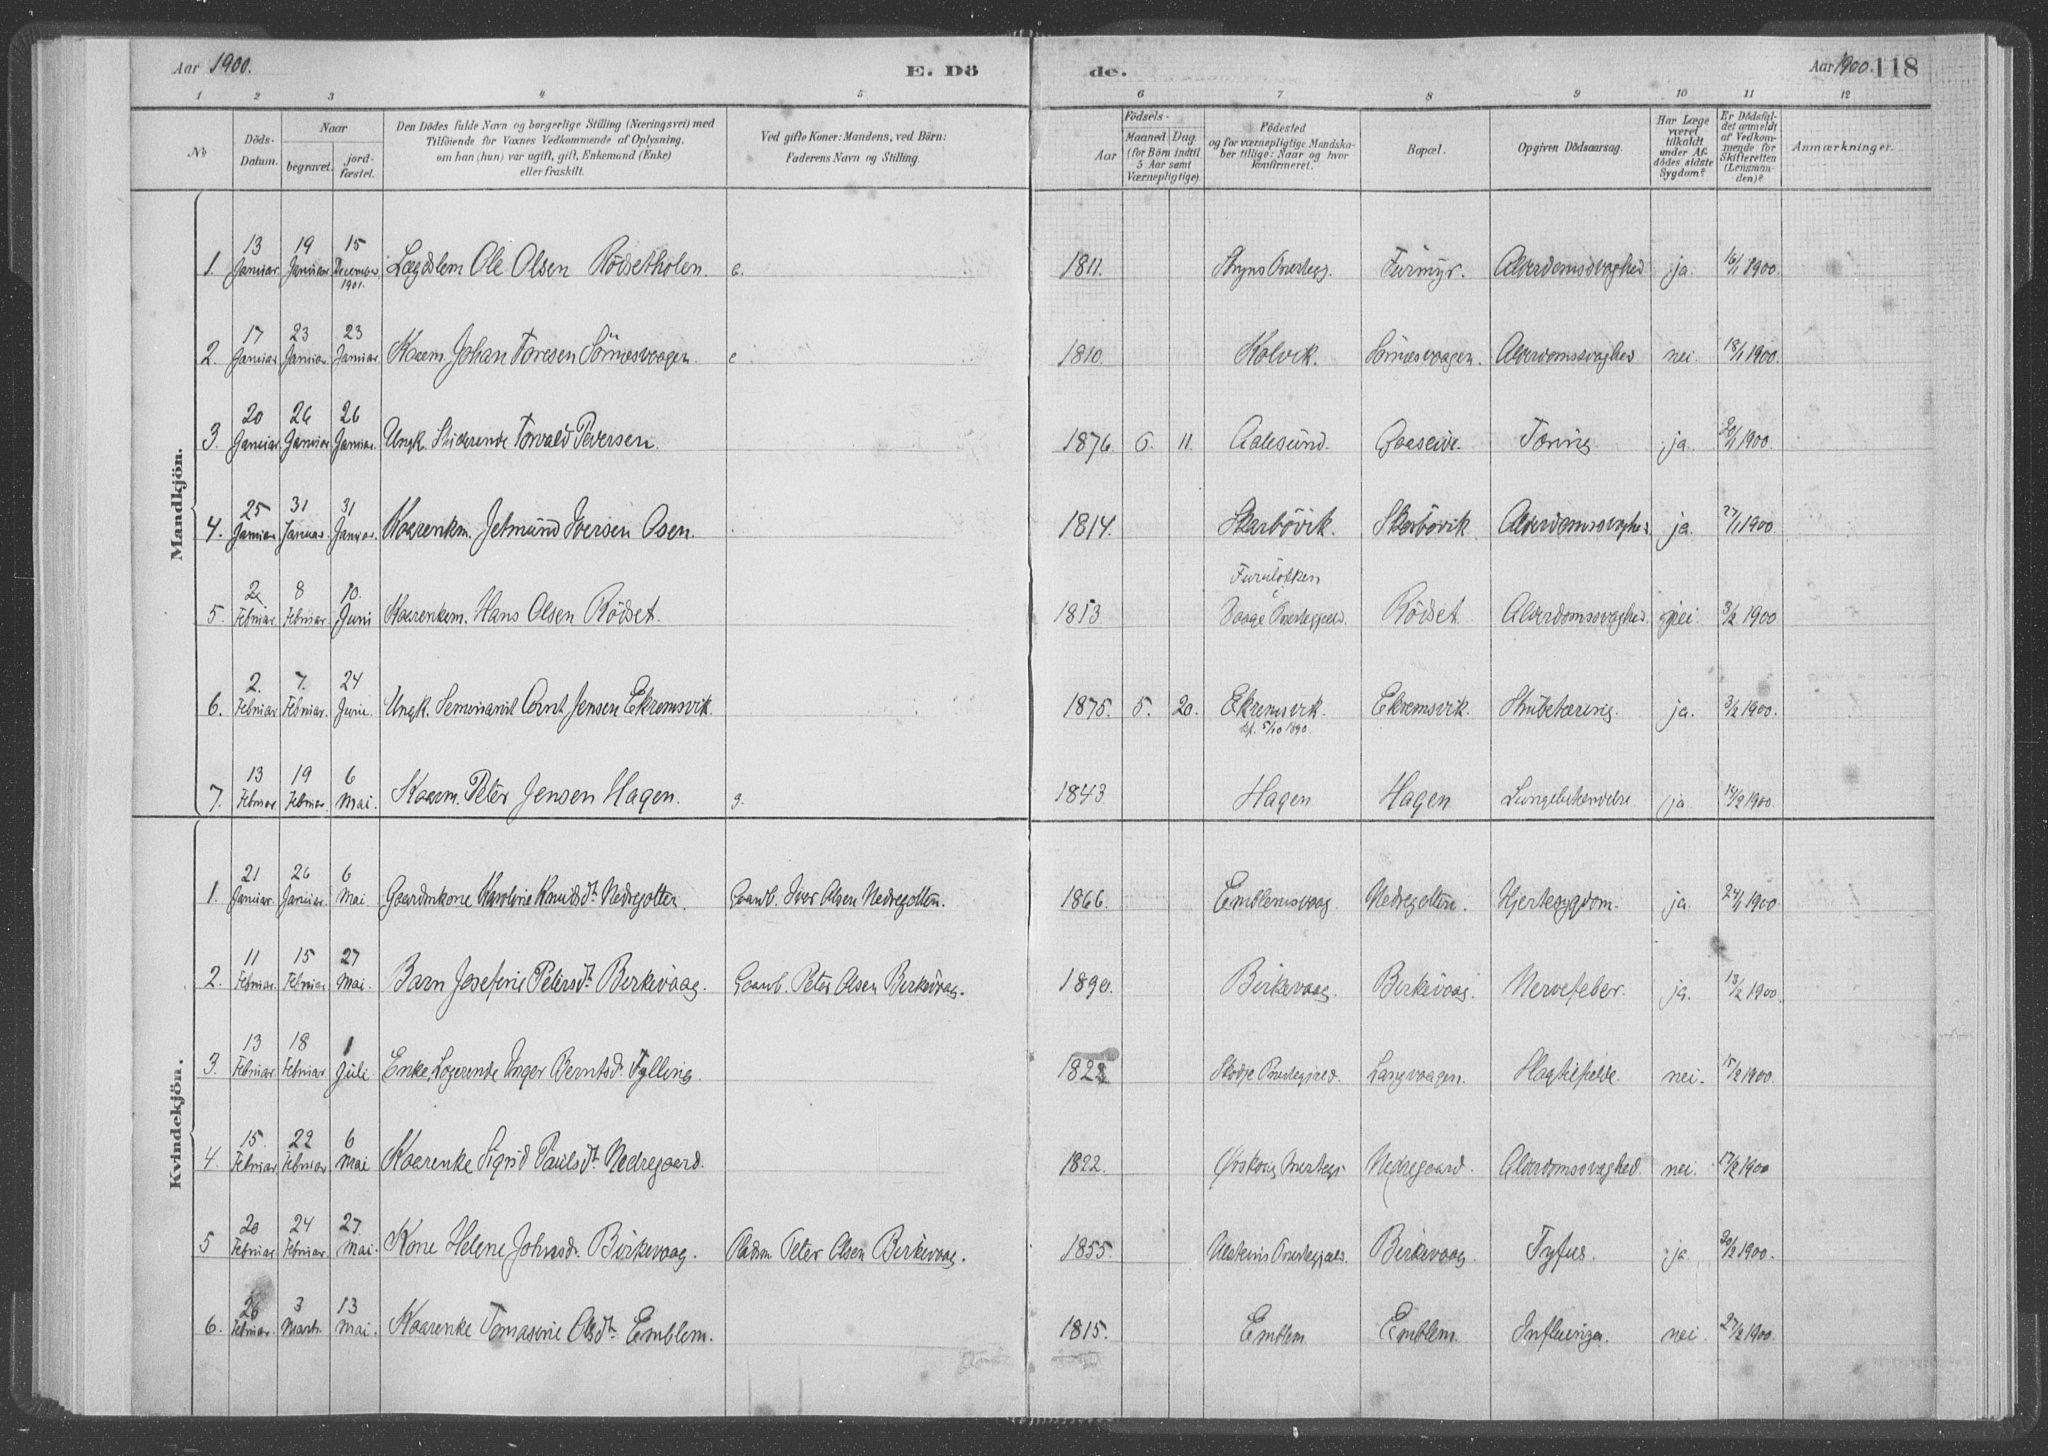 Aar 1900. E. Dö de. Aar 1900. 118
1 2 3 4 5 6 7 8 9 10 11 12
No Döds-Datum. Naar begravet. jordfæstet. Den Dödes fulde Navn og borgerlige Stilling (Næringsvei) med Tilföiende for Voxnes Vedkommende af Oplysning, om han (hun) var ugift, gift, Enkemand (Enke) eller fraskilt. Ved gifte Koner: Mandens, ved Börn: Faderens Navn og Stilling. Födsels- Aar Maaned Dag (for Börn indtil 5 Aar samt Værnepligtige). Födested og for værnepligtige Mandskaber tillige: Naar og hvor konfirmeret. Bopæl. Opgiven Dödsaarsag. Har Læge været tilkaldt under Afdödes sidste Sygdom? Er Dödsfaldet anmeldt af Vedkommende for Skifteretten (Lensmanden)? Anmærkninger.
Mandkjön.
1. 13 Januar 19 Januar 15 December 1901. Lægdslem Ole Olsen Rödsetholen. e. 1811. Stryns Præsteg. Furmyr. Alderdomssvaghed ja. 16/1 1900.
2. 17 Januar 23 Januar 23 Januar Kaarm. Johan Toresen Sörnesvaagen. e 1810. Kolvik. Sörnesvaagen. Alderdomssvaghed nei. 18/1 1900.
3. 20 Januar 26 Januar 26 Januar. Ungk. Studerende Torvald Petersen. 1876 6. 11. Aalesund. Gaaseid. Tæring ja. 20/1 1900.
4. 25 Januar 31 Januar 31 Januar Kaarenkm. Jetmund Iversen Osen. 1814. Skarbövik. Skarbövik. Alderdomssvaghed ja. 27/1 1900.
5. 2 Februar 8 Februar 10. Juni Kaarenkem. Hans Olsen Rödset. 1813 Furulökken Vaage Præstegjeld. Rödset. Alderdomssvaghed nei. 3/2 1900
6. 2. Februar 7. Februar. 24 Juni. Ungk. Seminarist Cornt Jensen Ekremsvik. 1875. 5. 20. Ekremsvik. kf. 5/10 1890. Ekremsvik. Strubetæring. ja. 3/2 1900.
7. 13 Februar 19 Februar 6 Mai. Kaarm. Peter Jensen Hagen. g. 1843 Hagen Hagen Lungebetændelse ja. 14/2 1900
Kvindekjön.
1. 21 Januar 26 Januar 6 Mai Gaardmkone Karoline Knudsdt. Nedregotten. Gaardb. Iver Olsen Nedregotten. 1866. Emblemsvaag. Nedregotten. Hjertesygdom. ja. 24/1 1900
2. 11 Februar. 15 Februar 27 Mai. Barn Josefine Petersdt. Birkevaag. Gaardb. Peter Olsen Birkevaag. 1890. Birkevaag. Birkevaag. Nervefeber. ja. 13/2 1900.
3. 13 Februar 18 Februar. 1 Juli Enke, Logerende Inger Berntsd. Fylling. 1822 Skodje Præstegjeld. Langvaagen. nei. 15/2 1900.
4. 15. Februar 22 Februar 6 Mai Kaarenke Sigrid Paulsdt. Nedregaard. 1822. Örskoug Præstegj. Nedregaard. Alderdomssvaghed. nei. 17/2 1900
5 20 Februar 24 Februar 27 Mai. Kone Helene Johnsd. Birkevaag. Pladsm Peter Olsen Birkevaag. 1855. Ulstens Præstegjelds. Birkevaag. Tyfus. ja. 20/2 1900.
6. 26 Februar. 3 Marts. 13 Mai. Kaarenke Tomasine Olsdt. Emblem. 1815. Emblem. Emblem. Influenza. nei. 27/2 1900.